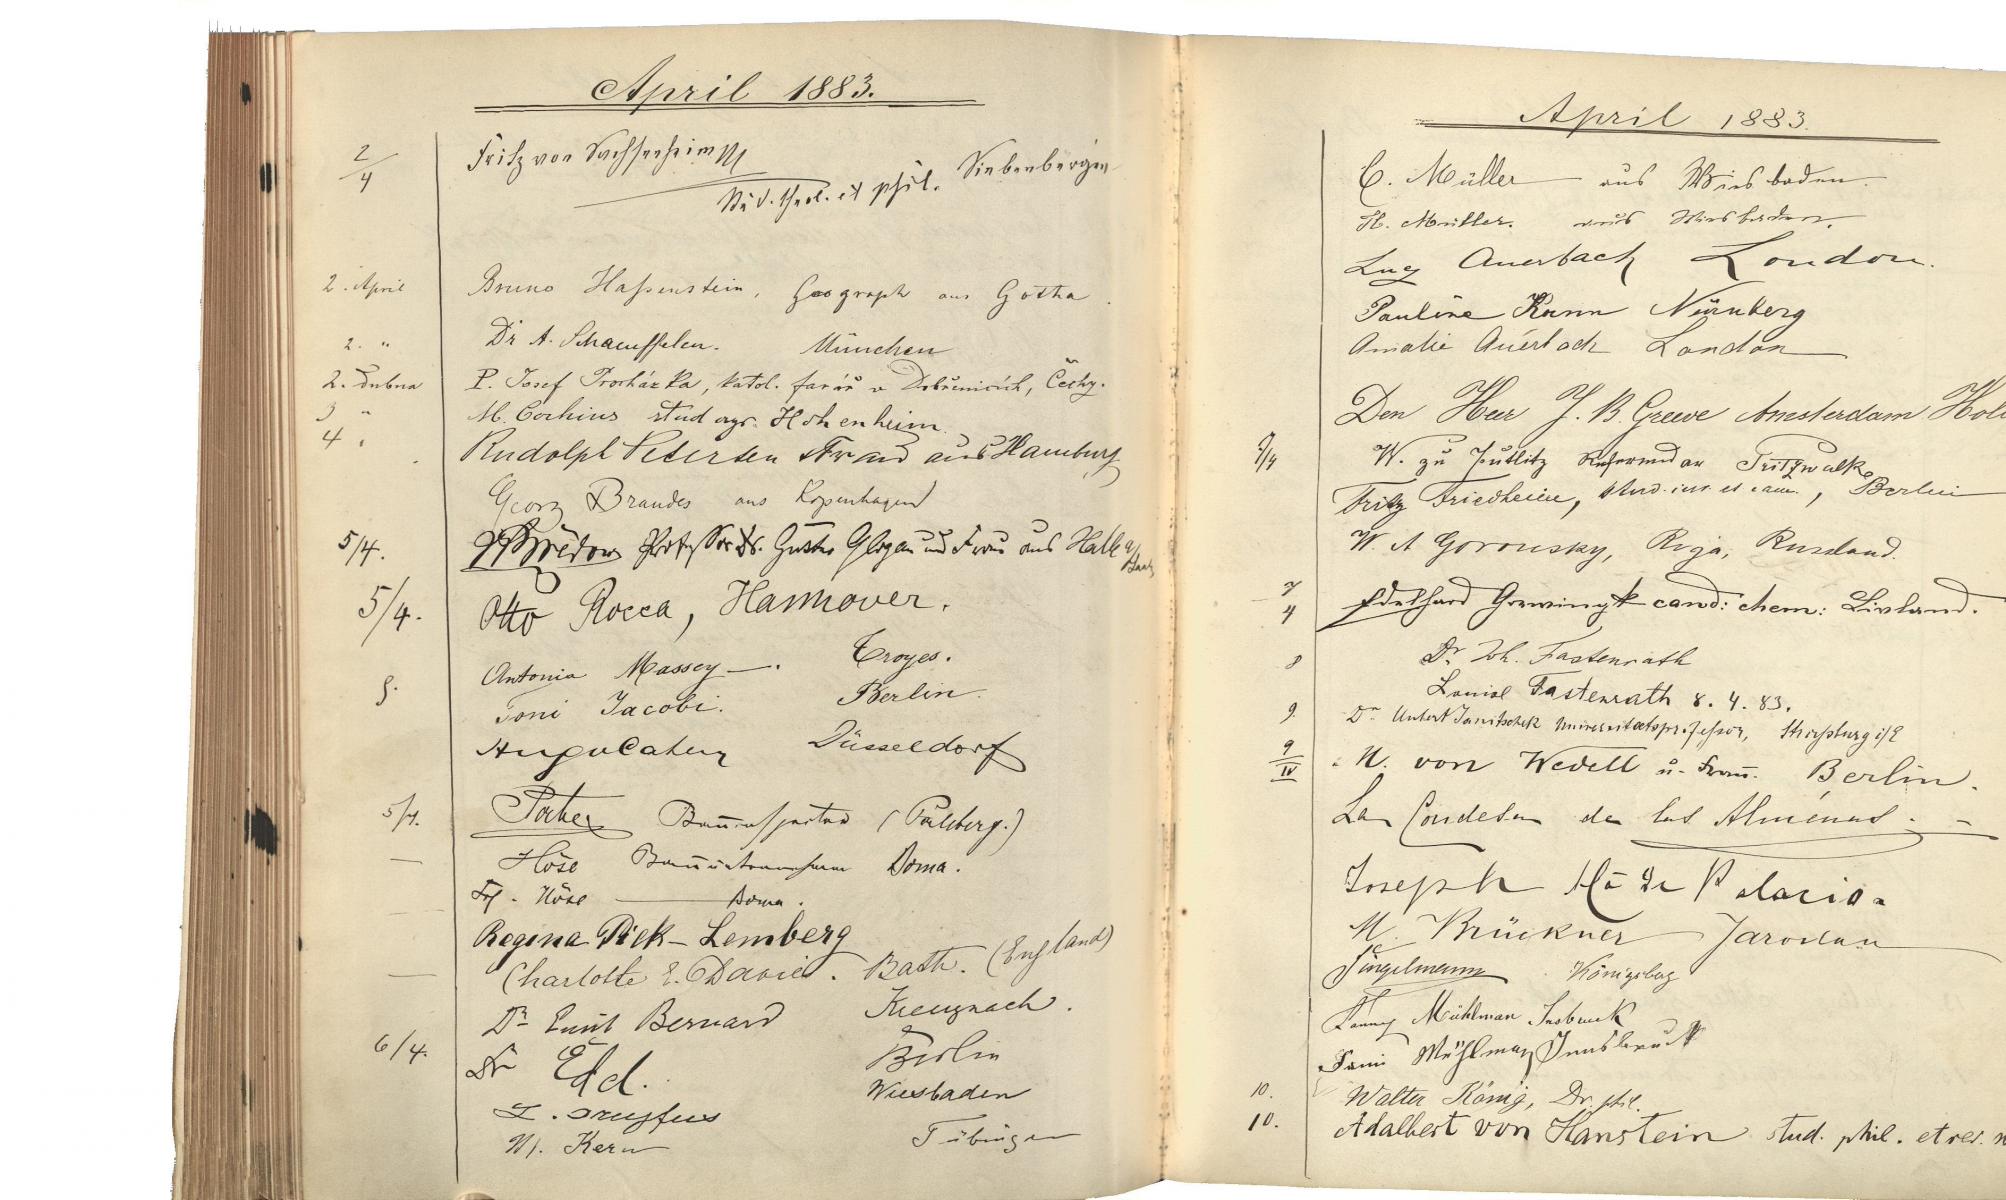 April 1883.
2/4 Fritz von Sachsenheim
stud. theol. et phil. Siebenbürgen
2. April Bruno Haßenstein, Geograph aus Gotha.
2. " Dr A. Schaeuffelen. München
2. Dubna P. Josef Procházka, katol. farář v Dobřenicích, Čechy.
3 " M. Cochius stud agr. Hohenheim
4 " Rudolph Petersen & Frau aus Hamburg
Georg Brandes aus Kopenhagen
5/4. Professor Dr. Gustav Glogau und Frau aus Halle a/Saale
5/4. Otto Rocca, Hannover.
Antonia Massey. Troyes.
5. Toni Jacobi. Berlin.
Düsseldorf
5/4. Bauinspector
Höse Roma.
Frl. Höse Roma.
Regina Piek-Lemberg
Charlotte E. Davie. Bath. (England)
Dr Emil Bernard Kreuznach.
6/4. Dr Ed. Berlin
L. Dreyfus Wiesbaden
Kern Tübingen
April 1883.
C. Müller aus Wiesbaden.
H. Müller. aus Wiesbaden.
Lucy Auerbach London.
Pauline Kann Nürnberg
Amalie Auerbach London
Den Heer J. B. Greeve Amsterdam
7/4 W. zu Putlitz Referendar Pritzwalk
Fritz Friedheim, stud. iur. et cam., Berlin
W. A Gorousky, Riga, Russland.
7/4 Edelhard Grewingk cand: chem: Livland.
8 Dr. Joh. Fastenrath
Louise Fastenrath 8. 4. 83.
9. Dr. Hubert Janitschek Universitätsprofessor, Straßburg i/E
9/IV v. von Wedell u. Frau. Berlin.
La Condesa de las Almenas.
Joseph Ma de Palacio.
M. Brückner Jaroslau
Jingelmann Königsberg
Fanny Mühlman Insbruck
Fani Mühlman Innsbruck
10. Walter König, Dr. phil.
10. Adalbert von Hanstein stud. phil. et rer. n